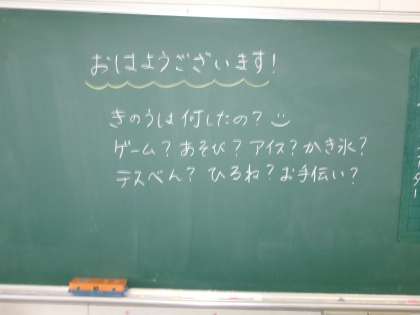 おはようございます!
きのうは何したの?
ゲーム? あそび? アイス? かき氷?
テスべん? ひるね? お手伝い?